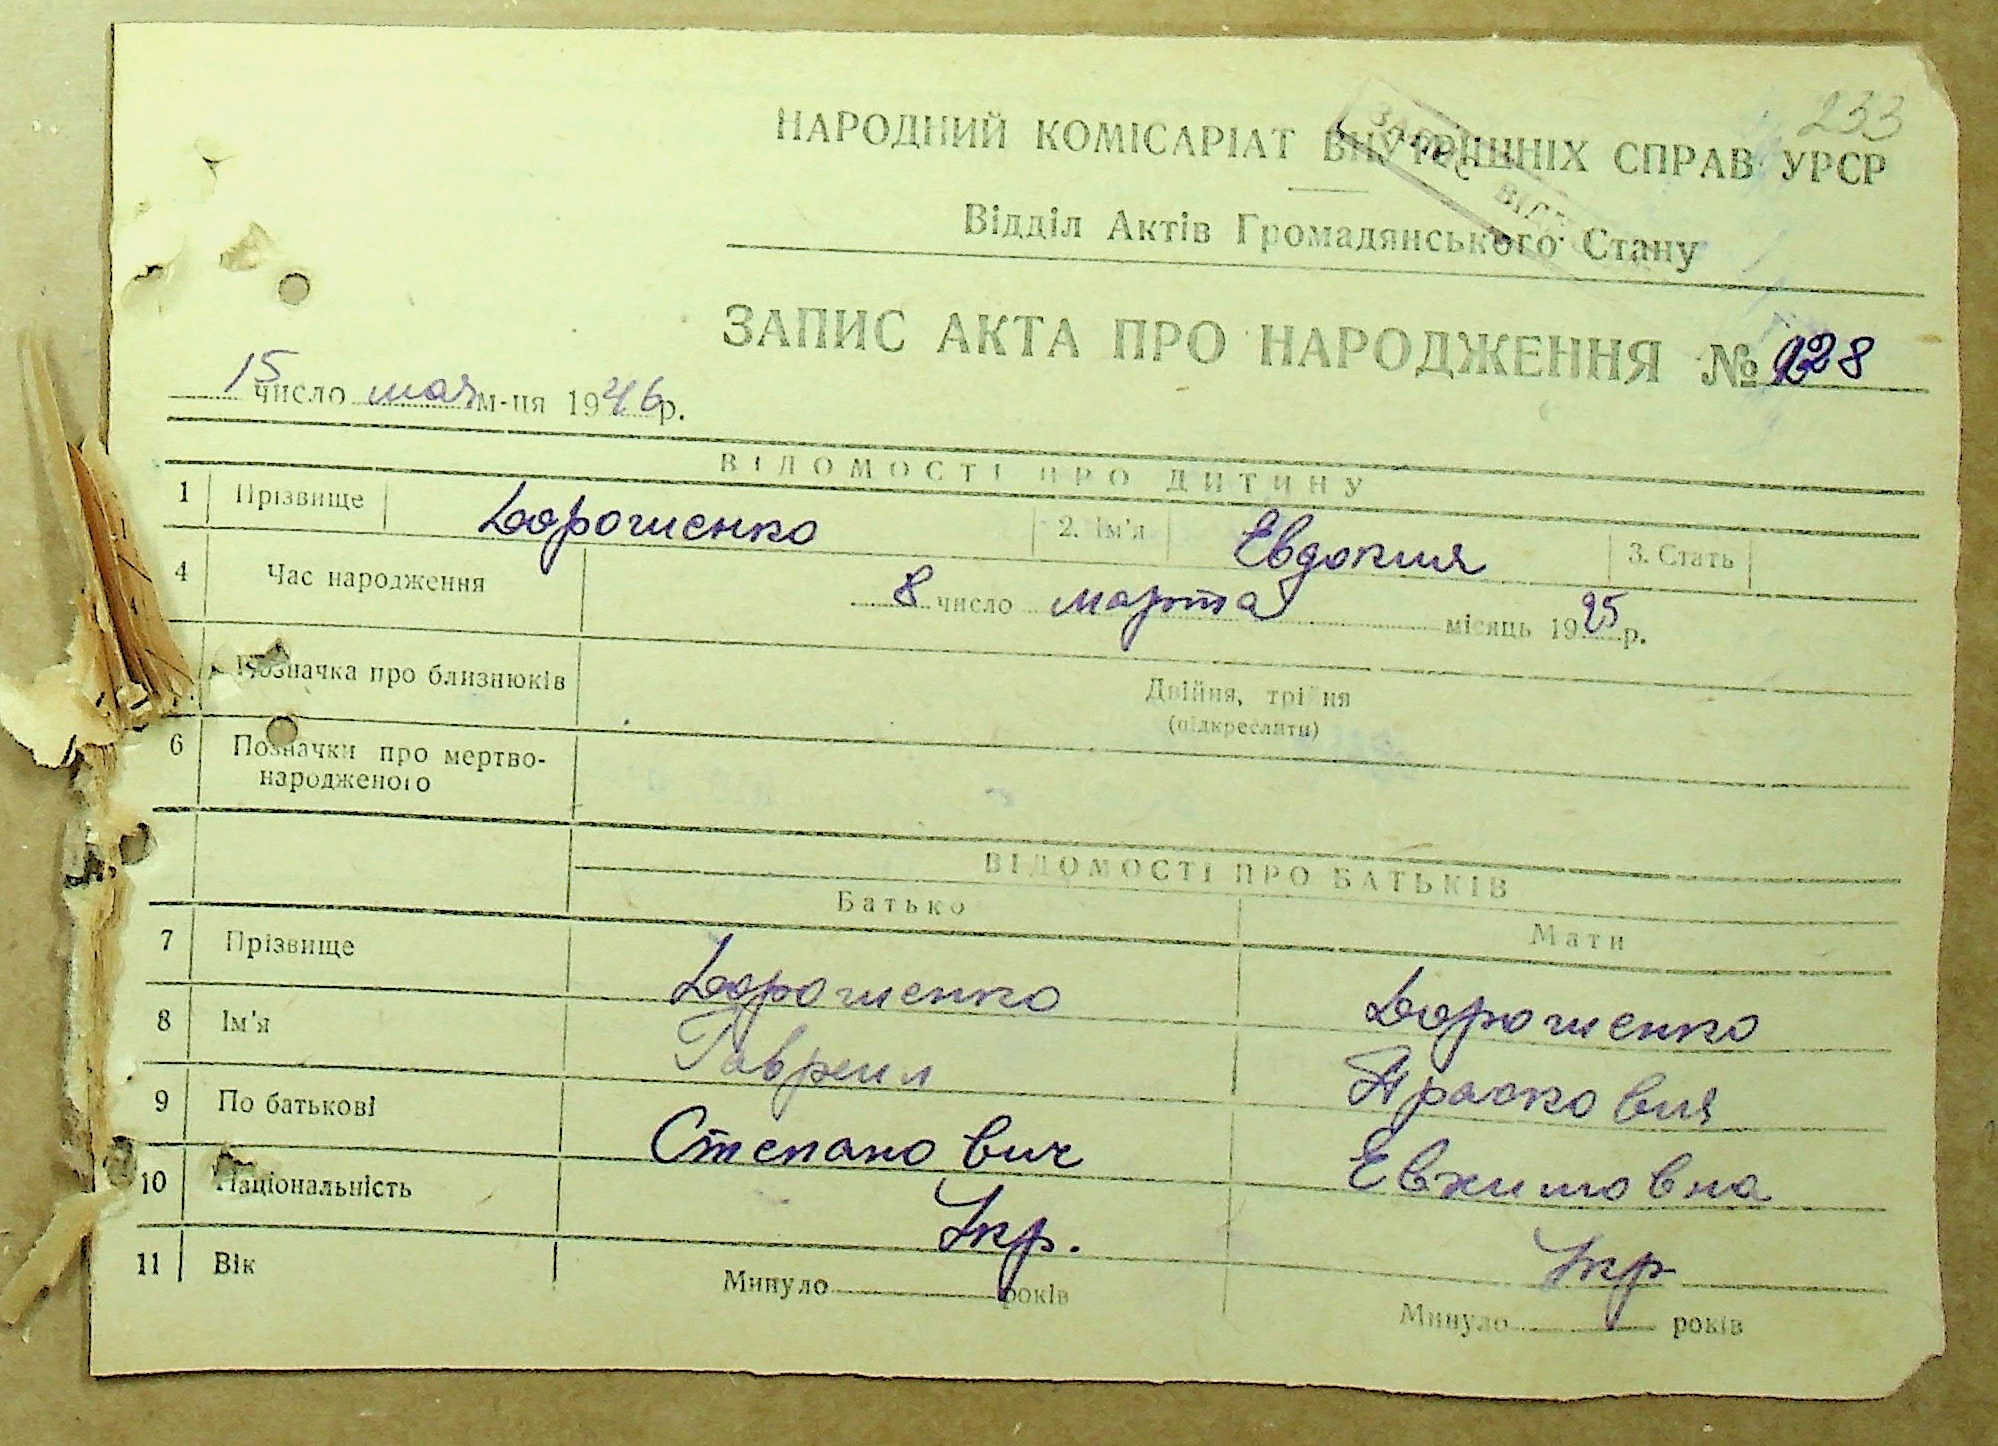 233
НАРОДНИЙ КОМІСАРІАТ ВНУТРІШНІХ СПРАВ УРСР
Відділ Актів Громадянського Стану
ЗАПИС АКТА ПРО НАРОДЖЕННЯ № 128
15 число мая м-ця 1946 р.
ВІДОМОСТІ ПРО ДИТИНУ
1 Прізвище Дорошенко 2. Ім'я Евдокия 3. Стать
4 Час народження 8 число марта місяць 1925 р.
Позначка про близнюків Двійня, трійня
(підкреслити)
6 Позначки про мертво-
народженого
ВІДОМОСТІ ПРО БАТЬКІВ
Батько Мати
7 Прізвище Дорошенко Дорошенко
8 Ім'я Гавреил Прасковия
9 По батькові Степанович Евхимовна
10 Національність Укр. Укр
11 Вік Минуло років Минуло років